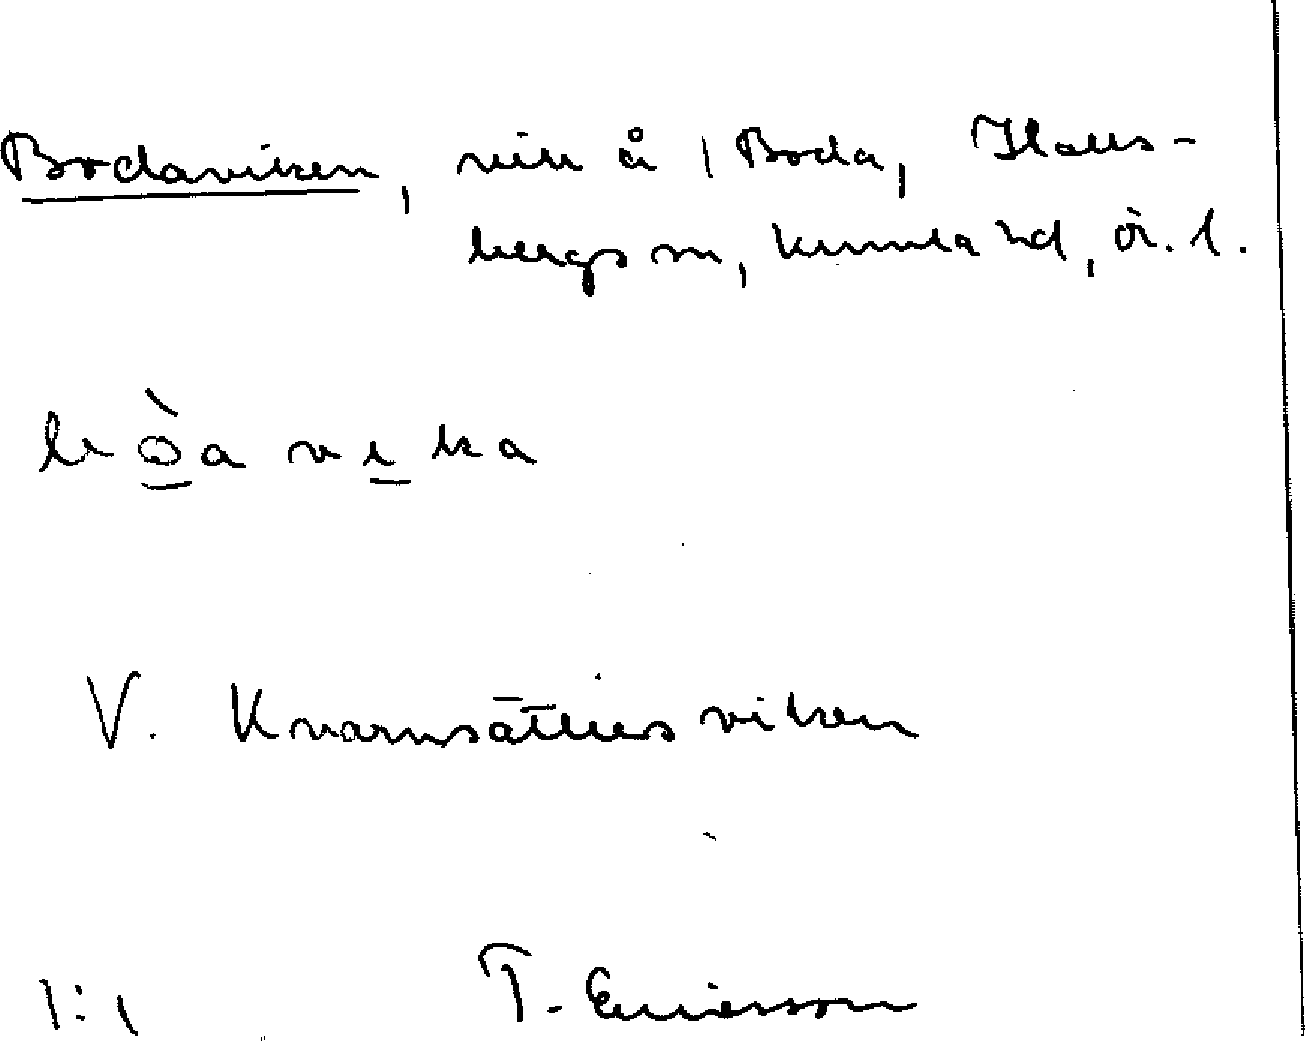 Bodaviken, vik å 1 Boda, Halls-
bergs sn, Kumla hd, Ör. l.
bò̲a vi̲ka
V. Kvarnsätters viken
1:1 T. Ericsson